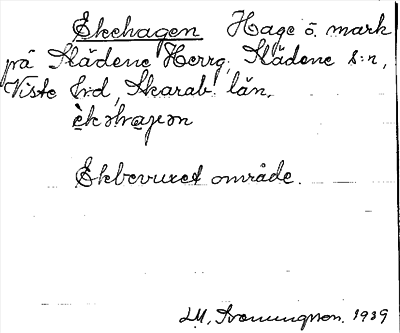 Ekehagen Hage o. mark
på Slädene Herrg. Slädene s:n,
Viste hd, Skarab. län.
èkəhagən
Ekbevuxet område.
1939